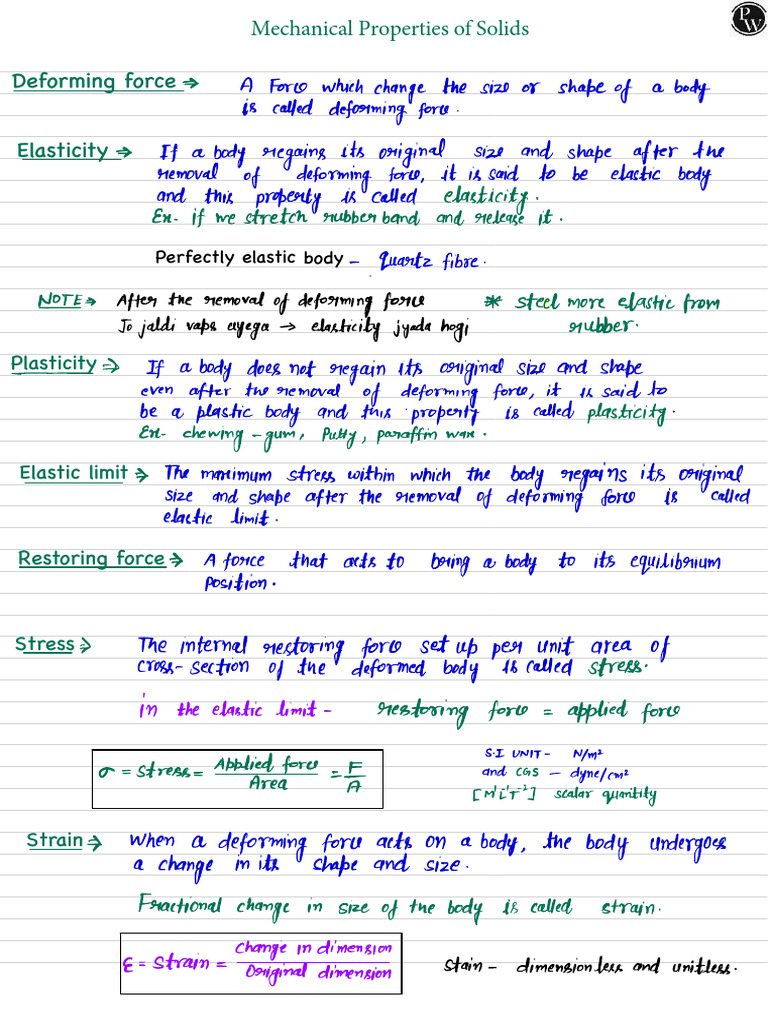 Mechanical Properties of Solids
PW
Deforming force → A Force which change the size or shape of a body
is called deforming force.
Elasticity → If a body regains its original size and shape after the
removal of deforming force, it is said to be elastic body
and this property is called elasticity.
Ex- if we stretch rubber band and release it.
Perfectly elastic body – quartz fibre.
NOTE → After the removal of deforming force
Jo jaldi vaps ayega → elasticity jyada hogi
* steel more elastic from
rubber.
Plasticity → If a body does not regain its original size and shape
even after the removal of deforming force, it is said to
be a plastic body and this property is called plasticity.
Ex- chewing-gum, Putty, paraffin wax.
Elastic limit → The maximum stress within which the body regains its original
size and shape after the removal of deforming force is called
elastic limit.
Restoring force → A force that acts to bring a body to its equilibrium
position.
Stress → The internal restoring force set up per unit area of
cross-section of the deformed body is called stress.
in the elastic limit – restoring force = applied force
σ = Stress = Applied force / Area = F / A
S.I UNIT – N/m²
and CGS – dyne/cm²
[M¹L⁻¹T⁻²] scalar quantity
Strain → When a deforming force acts on a body, the body undergoes
a change in its shape and size.
Fractional change in size of the body is called strain.
ε = Strain = Change in dimension / Original dimension
Stain – dimensionless and unitless.